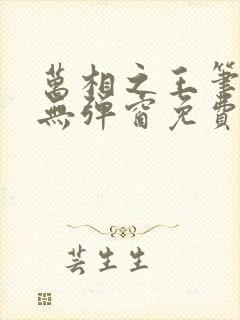 萬相之王筆
無彈窗免費
芸生生